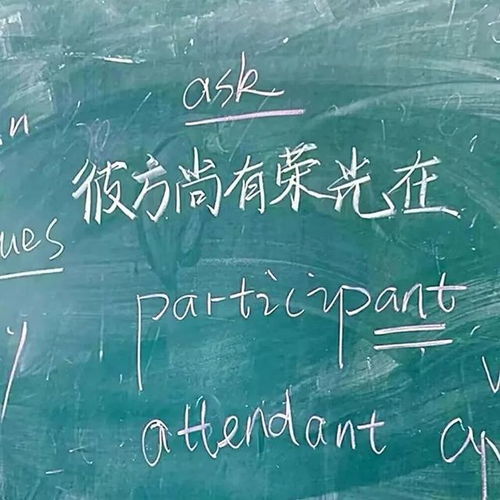 ask
彼方尚有荣光在
participant
attendant